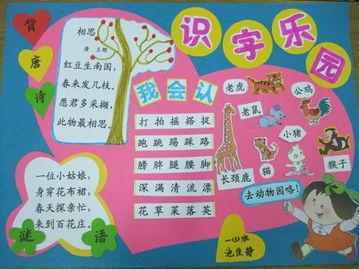 识字乐园
背唐诗
相思
唐 王维
红豆生南国,
春来发几枝。
愿君多采撷,
此物最相思。
我会认
打拍摇搭捉
跑跳踢踩路
膀胖腿腰脚
深满清流漂
花草菜落英
老虎
公鸡
老鼠
小猪
猴子
猫
长颈鹿
去动物园咯!
一位小姑娘,
身穿花布裙,
春天探亲忙,
来到百花庄。
谜语